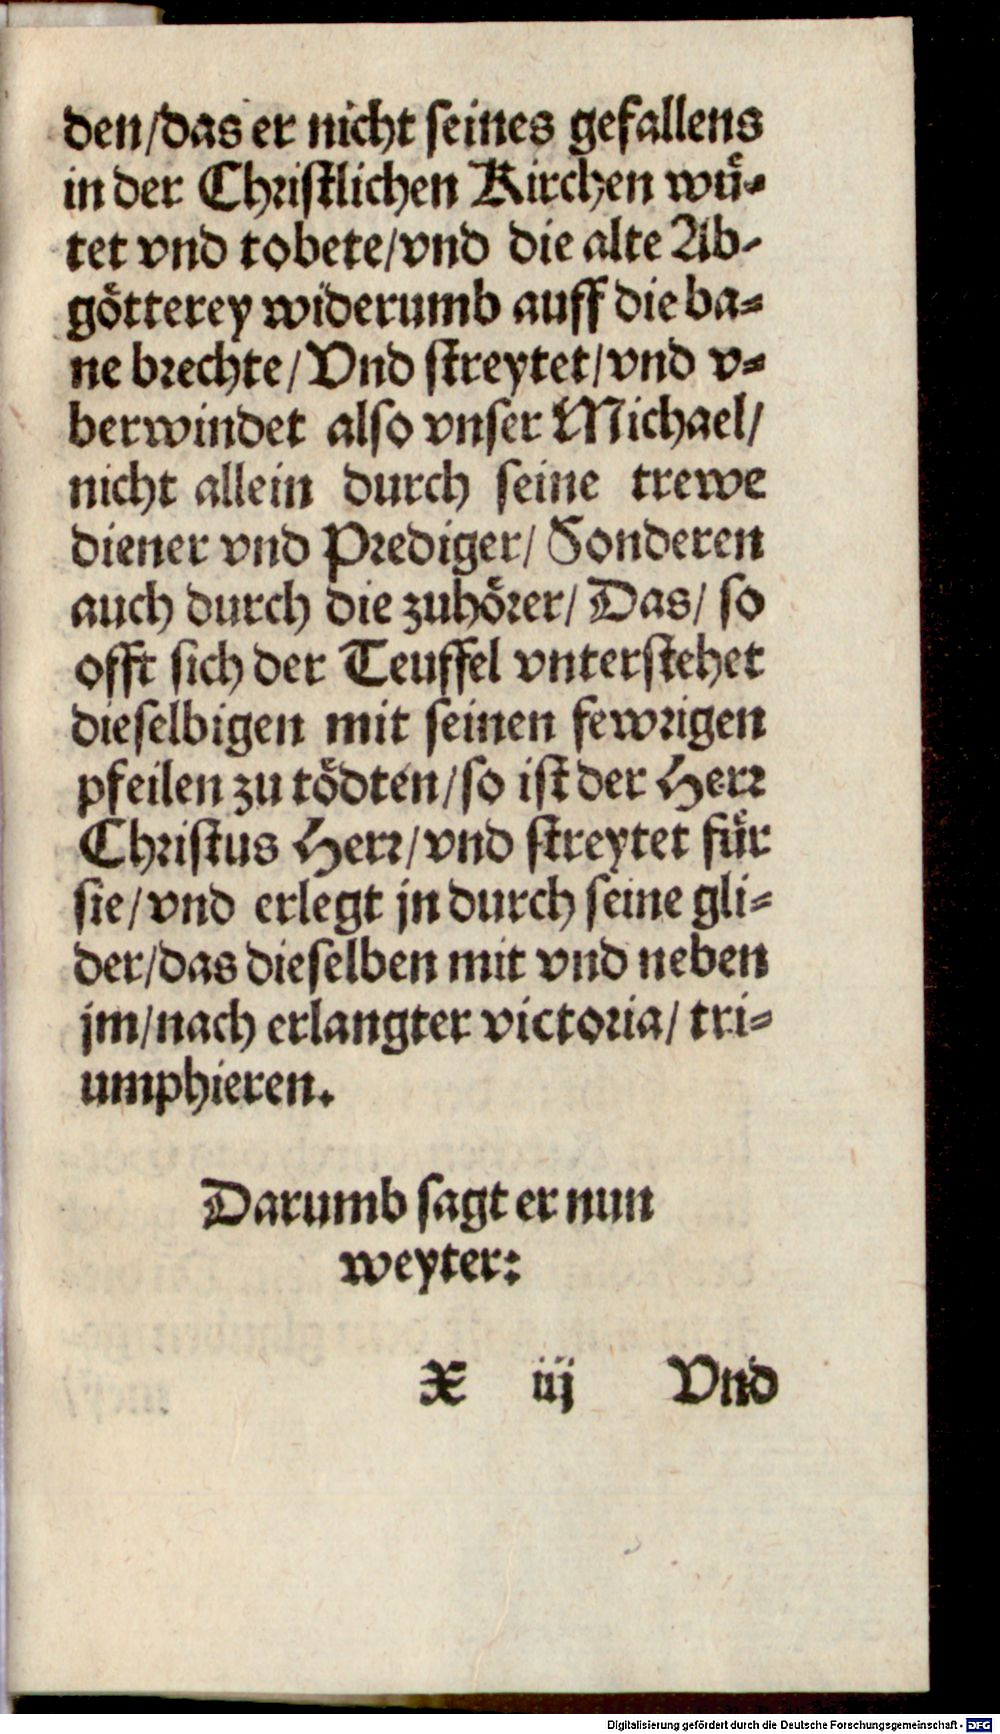 den/das er nicht seines gefallens
in der Christlichen Kirchen wuͤ-
tet vnd tobete/vnd die alte Ab-
goͤtterey widerumb auff die ba-
ne brechte/Vnd streytet/vnd v-
berwindet also vnser Michael/
nicht allein durch seine trewe
diener vnd Prediger/ Sonderen
auch durch die zuhoͤrer/ Das/ so
offt sich der Teuffel vnterstehet
dieselbigen mit seinen fewrigen
pfeilen zu toͤdten/so ist der Herr
Christus Herr/vnd streytet fuͤr
sie/vnd erlegt jn durch seine gli-
der/das dieselben mit vnd neben
jm/nach erlangter victoria/ tri-
umphieren.
Darumb sagt er nun
weyter:
X iij Vnd
Digitalisierung gefördert durch die Deutsche Forschungsgemeinschaft - DFG